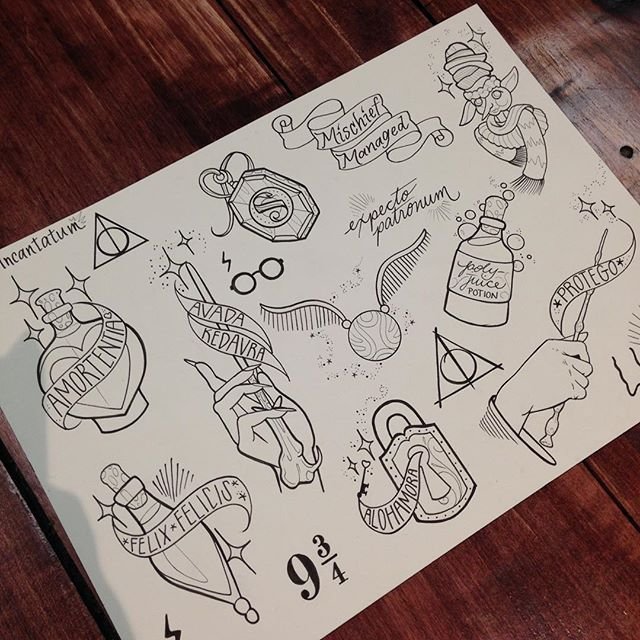 Mischief
Managed
Incantatum
expecto
patronum
poly-
juice
POTION
PROTEGO
AVADA
KEDAVRA
AMORTENTIA
ALOHAMORA
FELIX FELICIO
9 3/4